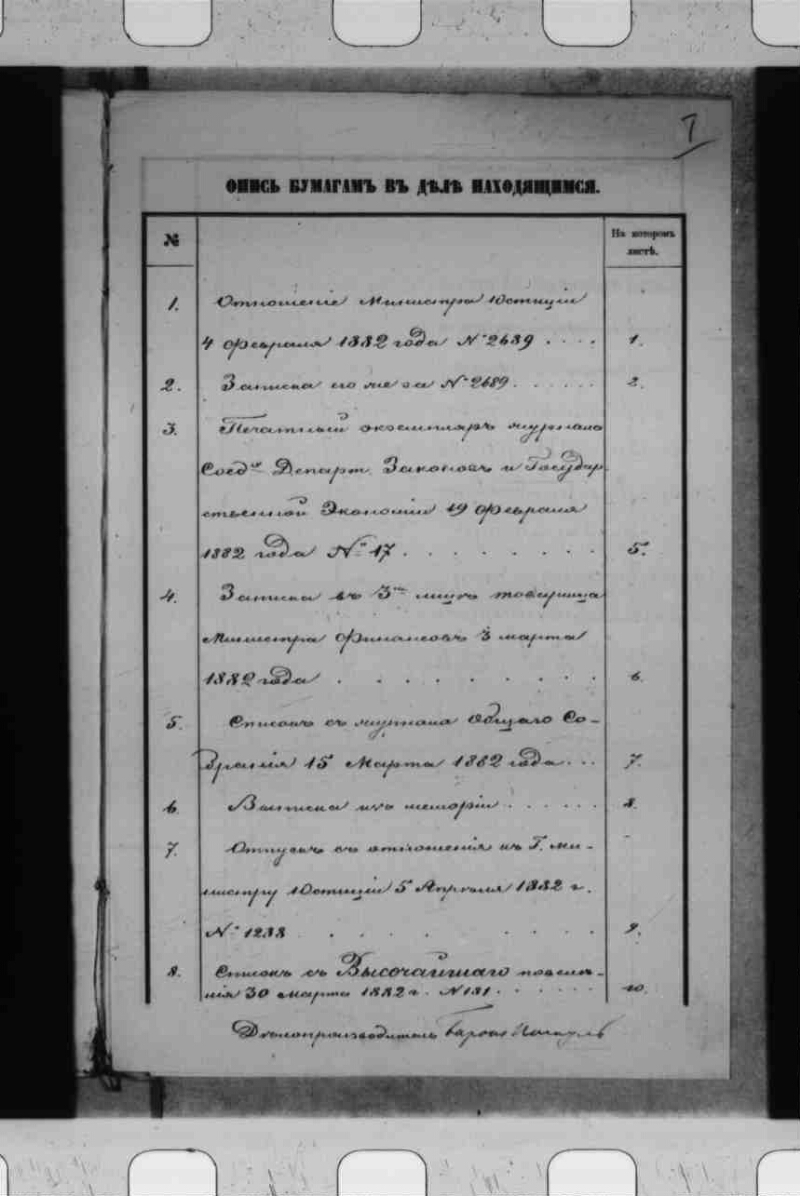 ОПИСЬ БУМАГАМЪ ВЪ ДѢЛѢ НАХОДЯЩИМСЯ.
№
На которомъ листѣ.
1. Отношеніе Министра Юстиціи
4 февраля 1882 года № 2689 . . . . 1.
2. Записка его же за № 2689 . . . . . . 2.
3. Печатный экземпляръ журнала
Соед. Департ. Законовъ и Государ-
ственной Экономіи 19 февраля
1882 года № 17 . . . . . . . . 5.
4. Записка въ 3 лицѣ товарища
Министра Финансовъ 3 марта
1882 года . . . . . . . . . 6.
5. Списокъ съ журнала Общаго Со-
бранія 15 Марта 1882 года . . . 7.
6. Выписка изъ меморіи . . . . . . 8.
7. Отпускъ съ отношенія къ Г. Ми-
нистру Юстиціи 5 Апрѣля 1882 г.
№ 1233 . . . . . . . . 9.
8. Списокъ съ Высочайшаго повелѣ-
нія 30 марта 1882 г. № 131 . . . . . . 10.
Дѣлопроизводитель Баронъ